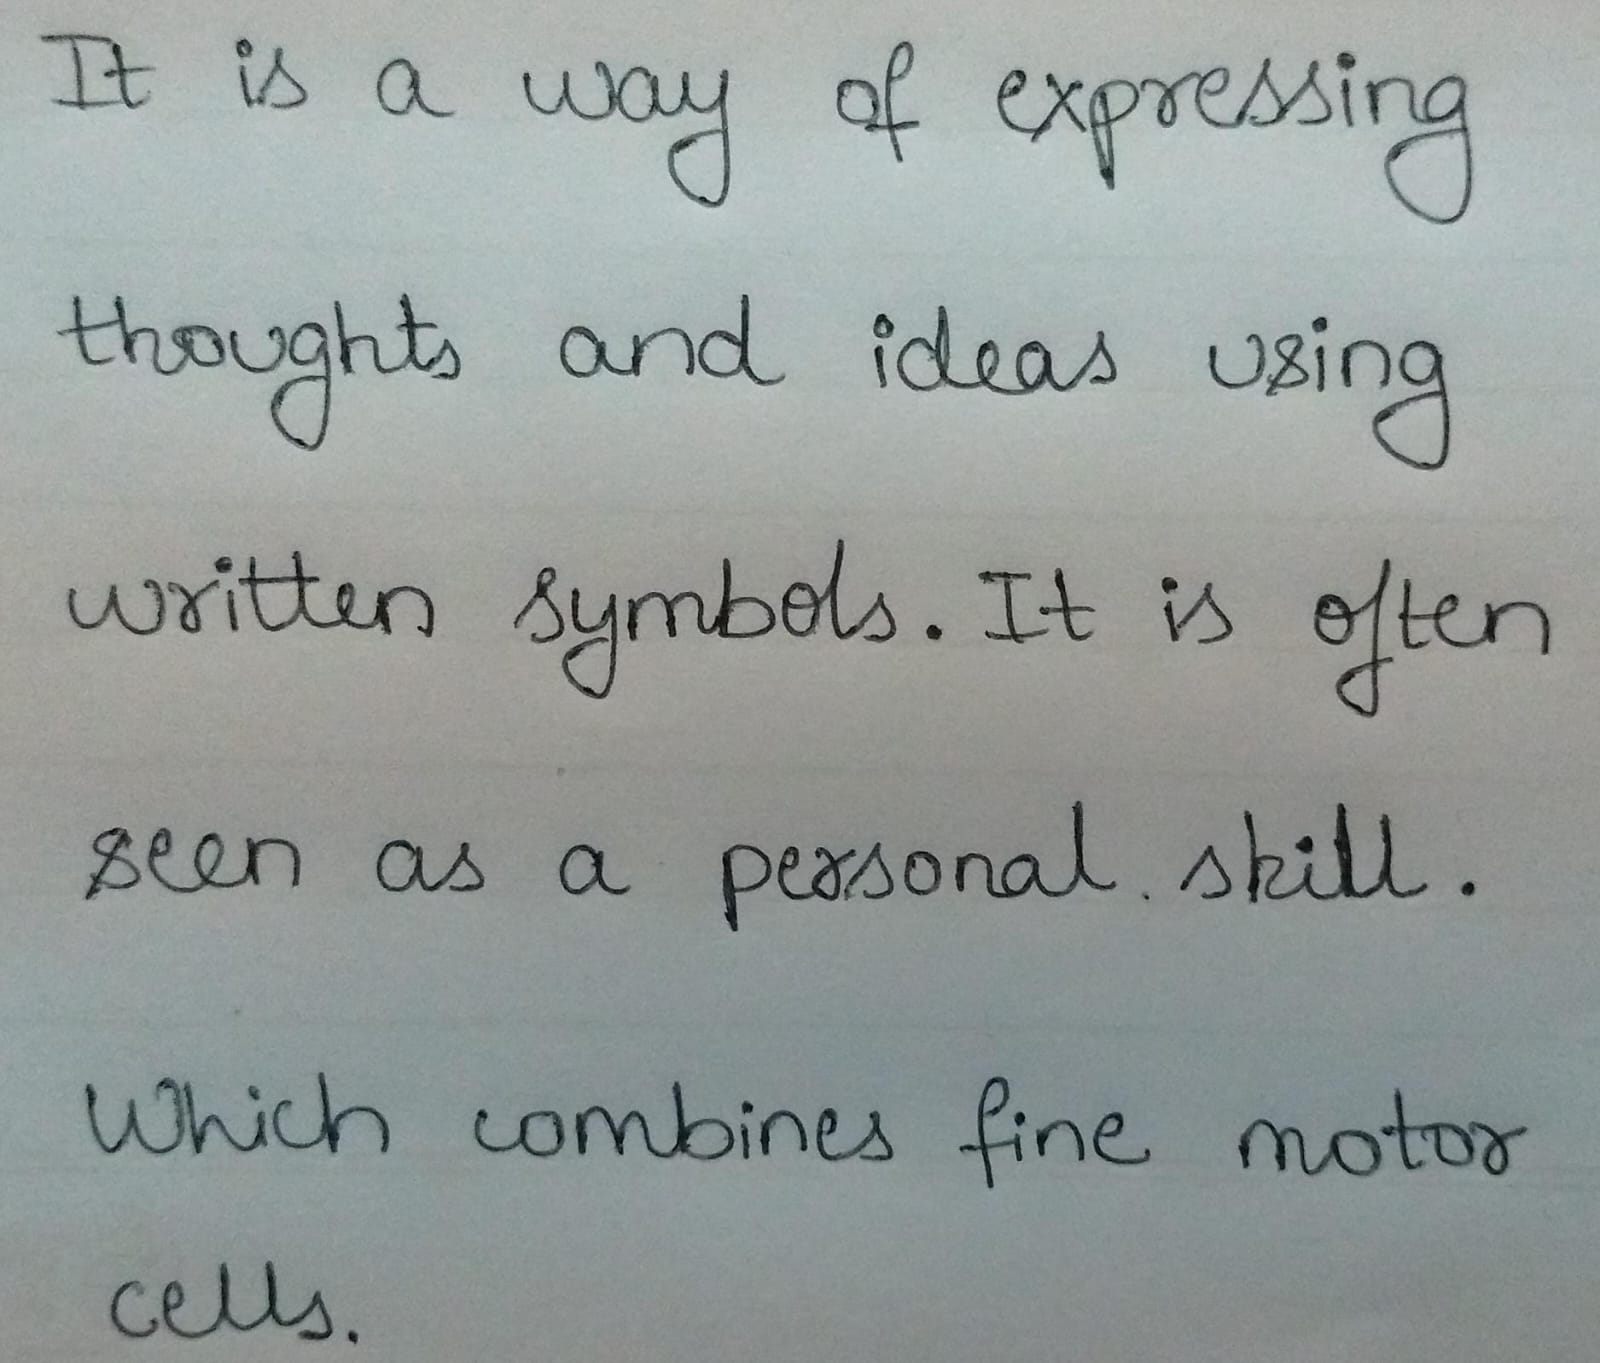 It is a way of expressing
thoughts and ideas using
written symbols. It is often
seen as a personal. skill.
Which combines fine motor
cells.